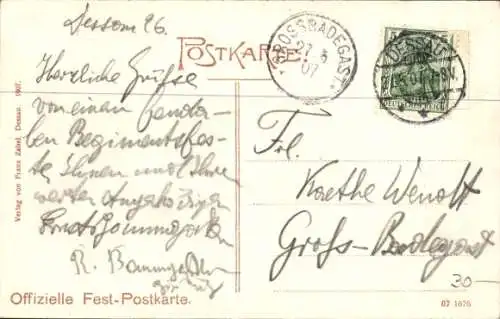 Dessau 26.
POSTKARTE
GROSSBADEGAST
27 5
07
DESSAU
DEUTSCHES REICH
Herzliche Grüße
von einem
Regimentsfes-
te Ihnen und Ihre
werten Angehörigen
R. Baumgarten
Frl.
Kaethe Wendt
Groß-Badegast
Verlag von Franz Zabel, Dessau. 1907.
Offizielle Fest-Postkarte.
07 1676
30-